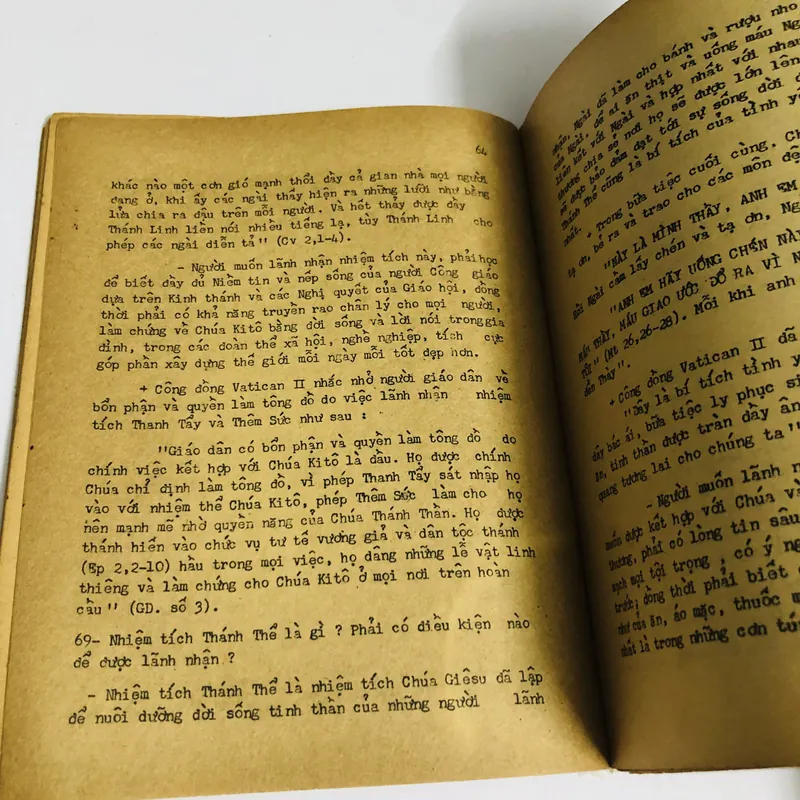 64
khác nào một cơn gió mạnh thổi đầy cả gian nhà mọi người
đang ở, khi ấy các ngài thấy hiện ra những lưỡi như bằng
lửa chia ra đậu trên mỗi người. Và hết thảy được đầy
Thánh Linh liền nói nhiều tiếng lạ, tùy Thánh Linh cho
phép các ngài diễn tả" (Cv 2,1-4).
- Người muốn lãnh nhận nhiệm tích này, phải học
để biết đầy đủ Niềm tin và nếp sống của người Công giáo
dựa trên Kinh thánh và các Nghị quyết của Giáo hội, đồng
thời phải có khả năng truyền rao chân lý cho mọi người,
làm chứng về Chúa Kitô bằng đời sống và lời nói trong gia
đình, trong các đoàn thể xã hội, nghề nghiệp, tích cực
góp phần xây dựng thế giới mỗi ngày mỗi tốt đẹp hơn.
+ Công đồng Vatican II nhắc nhở người giáo dân về
bổn phận và quyền làm tông đồ do việc lãnh nhận nhiệm
tích Thanh Tẩy và Thêm Sức như sau :
"Giáo dân có bổn phận và quyền làm tông đồ do
chính việc kết hợp với Chúa Kitô là đầu. Họ được chính
Chúa chỉ định làm tông đồ, vì phép Thanh Tẩy sát nhập họ
vào với nhiệm thể Chúa Kitô, phép Thêm Sức làm cho họ
nên mạnh mẽ nhờ quyền năng của Chúa Thánh Thần. Họ được
thánh hiến vào chức vụ tư tế vương giả và dân tộc thánh
(Ep 2,2-10) hầu trong mọi việc, họ dâng những lễ vật linh
thiêng và làm chứng cho Chúa Kitô ở mọi nơi trên hoàn
cầu" (GD. số 3).
69- Nhiệm tích Thánh Thể là gì ? Phải có điều kiện nào
để được lãnh nhận ?
- Nhiệm tích Thánh Thể là nhiệm tích Chúa Giêsu đã lập
để nuôi dưỡng đời sống tinh thần của những người lãnh
nhận, Ngài đã làm cho bánh và rượu nho
của Ngài, để ai ăn thịt và uống máu Ng
liên kết với Ngài và hợp nhất với nhau
thương chia sẻ nơi họ sẽ được lớn lên
được bảo đảm đạt tới sự sống đời đ
Thánh Thể cũng là bí tích của tình yê
nhất.
+ Trong bữa tiệc cuối cùng. Ch
tạ ơn, bẻ ra và trao cho các môn đệ
"NÀY LÀ MÌNH THẦY, ANH EM
Rồi Ngài cầm lấy chén và tạ ơn, Ng
"ANH EM HÃY UỐNG CHÉN NÀY
MÁU THẦY, MÁU GIAO ƯỚC ĐỔ RA VÌ N
TỘI" (Mt 26,26-28). Mỗi khi anh
đến Thầy".
+ Công đồng Vatican II đã
"Đây là bí tích tình y
dây bác ái, bữa tiệc ly phục si
ăn, tinh thần được tràn đầy ân
quang tương lai cho chúng ta"
- Người muốn lãnh n
muốn được kết hợp với Chúa và
thương, phải có lòng tin sâu
sạch mọi tội trọng ; có ý ng
trước; đồng thời phải biết
như của ăn, áo mặc, thuốc m
nhất là trong những cơn tún